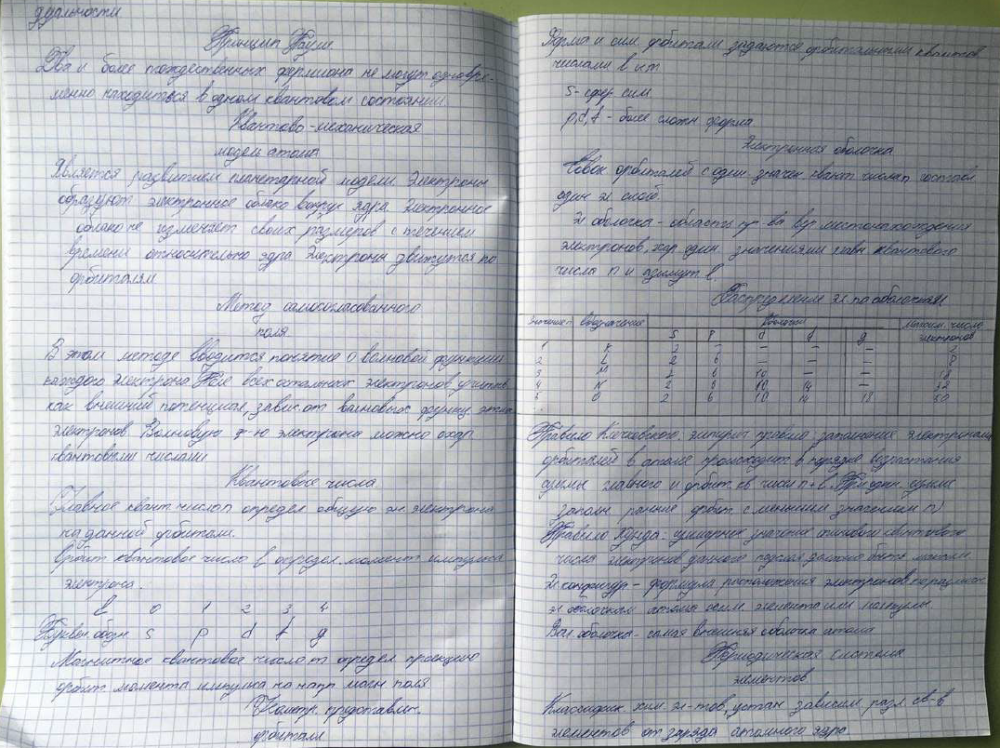 дуальности
Принцип Паули
Два и более тождественных фермиона не могут одновре-
менно находиться в одном квантовом состоянии
Квантово-механическая
модель атома
Является развитием планетарной модели. Электроны
образуют электронное облако вокруг ядра. Электронное
облако не изменяет своих размеров с течением
времени относительно ядра. Электроны движутся по
орбиталям
Метод самосогласованного
поля
В этом методе вводится понятие о волновой функции
каждого электрона. Поле всех остальных электронов учитыв.
как внешний потенциал, завис. от волновых функц. этих
электронов. Волновую ф-ю электрона можно охар.
квантовыми числами
Квантовое числа
Главное квант. число n определ. общую эн. электрона
на данной орбитали.
Орбит. квантовое число l определ. момент импульса
электрона.
l 0 1 2 3 4
Буквен. обозн. s p d f g
Магнитное квантовое число m определ. проекцию
орбит. момента импульса на напр. магн. поля
Геометр. представлен.
орбитали
Форма и сим. орбитали задаются орбитальными квантов.
числами l и m
s - сфер. сим
p, d, f - более сложн. форма
Электронная оболочка
Совок. орбиталей с один. значен. квант. числа n составл.
один эл. слой.
Эл. оболочка - область пр-ва вер. местонахождения
электронов, хар. один. значениями главн. квантового
числа n и азимут. l
Распределение эл. по оболочкам
Значение n Обозначение Максим. число
s p d g электронов
1 K 2 — — — — 2
2 L 2 6 — — — 8
3 M 2 6 10 — — 18
4 N 2 6 10 14 — 32
5 O 2 6 10 14 18 50
Правило Клечковского: эмпирич. правило заполнения электронами
орбиталей в атоме происходит в порядке возрастания
суммы главного и орбит. кв. чисел n + l. При один. сумме
заполн. раньше орбит. с меньшим значением n)
Правило Хунда: суммарное значение спинового квантового
числа электронов данного подслоя должно быть максим.
Эл. конфигур. - формула расположения электронов по различн.
эл. оболочкам атома хим. элемента или молекулы
Вал. оболочка - самая внешняя оболочка атома
Периодическая система
элементов
Классифик. хим. эл-тов, устан. зависим. разл. св-в
элементов от заряда атомного ядра